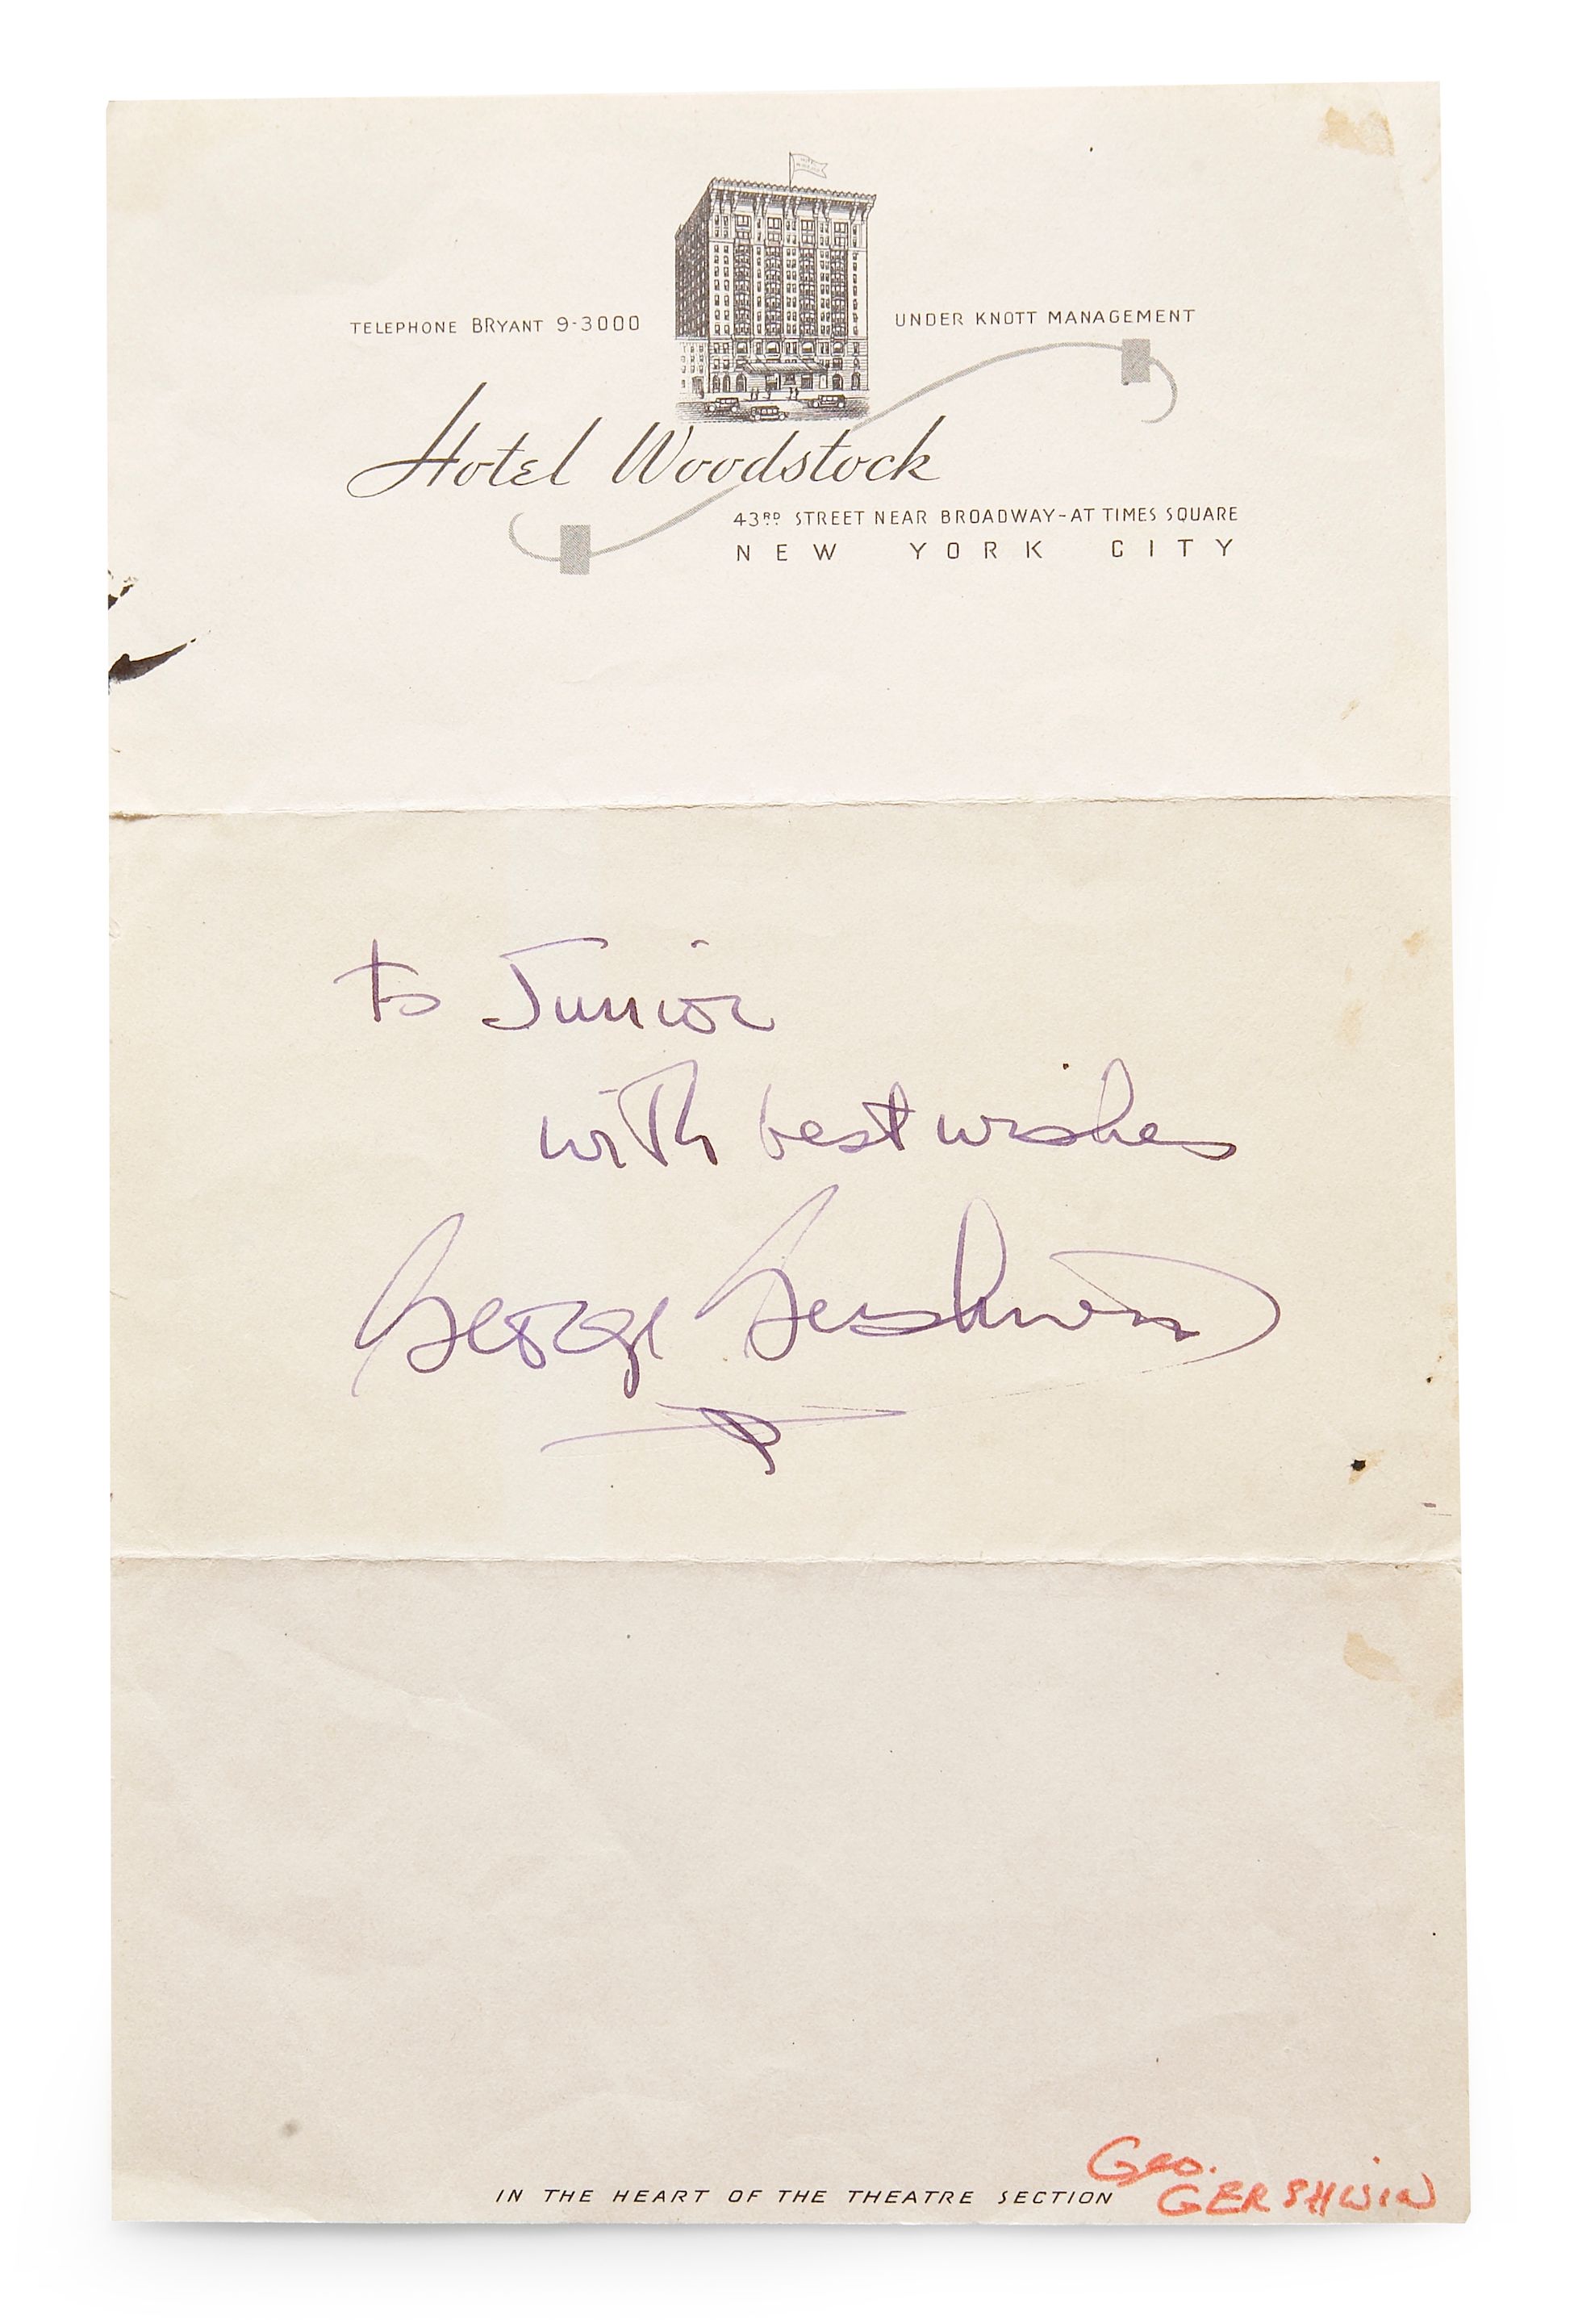 TELEPHONE BRYANT 9-3000
UNDER KNOTT MANAGEMENT
Hotel Woodstock
43RD STREET NEAR BROADWAY-AT TIMES SQUARE
NEW YORK CITY
to Junior
with best wishes
George Gershwin
IN THE HEART OF THE THEATRE SECTION
Geo.
GERSHWIN